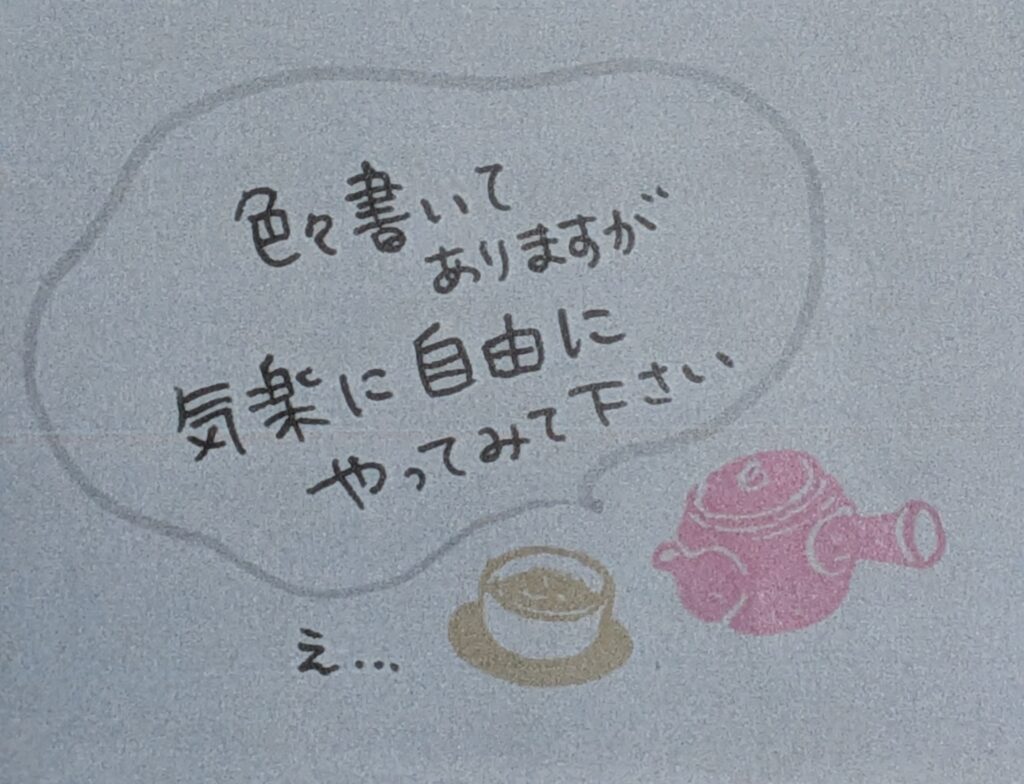 色々書いて
ありますが
気楽に自由に
やってみて下さい
え…